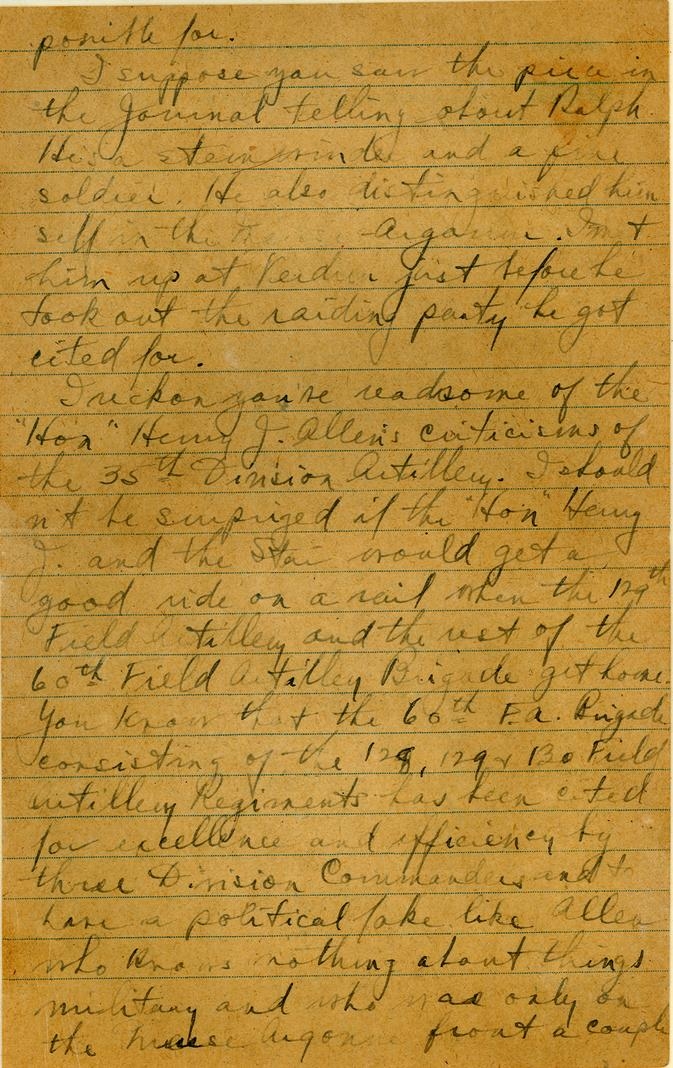 ponible for.
I suppose you saw the piece in
the Journal telling about Ralph.
He's a stem winder and a fine
soldier. He also distinguished him
self in the Argonne. I met
him up at Verdun just before he
took out the raiding party he got
cited for.
I reckon you've read some of the
"Hon" Henry J. Allen's criticisms of
the 35th Division Artillery. I should
n't be surprized if the "Hon" Henry
J. and the Star would get a
good ride on a rail when the 129th
Field Artillery and the rest of the
60th Field Artilley Brigade get home.
You know that the 60th F.A. Brigade
consisting of the 128, 129 & 130 Field
Artillery Regiments has been cited
for excellence and efficiency by
three Division Commanders and to
have a political fake like Allen
who knows nothing about things
military and who was only on
the Meuse Argonne front a couple